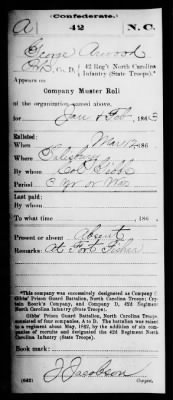 (Confederate.)
A 42 N.C.
George Atwood
Co. D, 42 Reg't North Carolina
Infantry (State Troops).*
Appears on
Company Muster Roll
of the organization named above,
for Jan & Feb, 1863
Enlisted:
When Mar 12, 186
Where Salisbury
By whom Col Gibbs
Period 3 Yr or War
Last paid:
By whom
To what time , 186 .
Present or absent Absent
Remarks: At Fort Fisher
*This company was successively designated as Company
Gibbs' Prison Guard Battalion, North Carolina Troops;
Company, and Company D, 42d Regiment
North Carolina Infantry (State Troops).
Gibbs' Prison Guard Battalion, North Carolina Troops,
consisted of four companies, A to D. The battalion was raised
to a regiment about May, 1862, by the addition of six companies
of recruits and designated the 42d Regiment North
Carolina Infantry (State Troops).
Book mark:
J Jacobson
(642) Copyist.